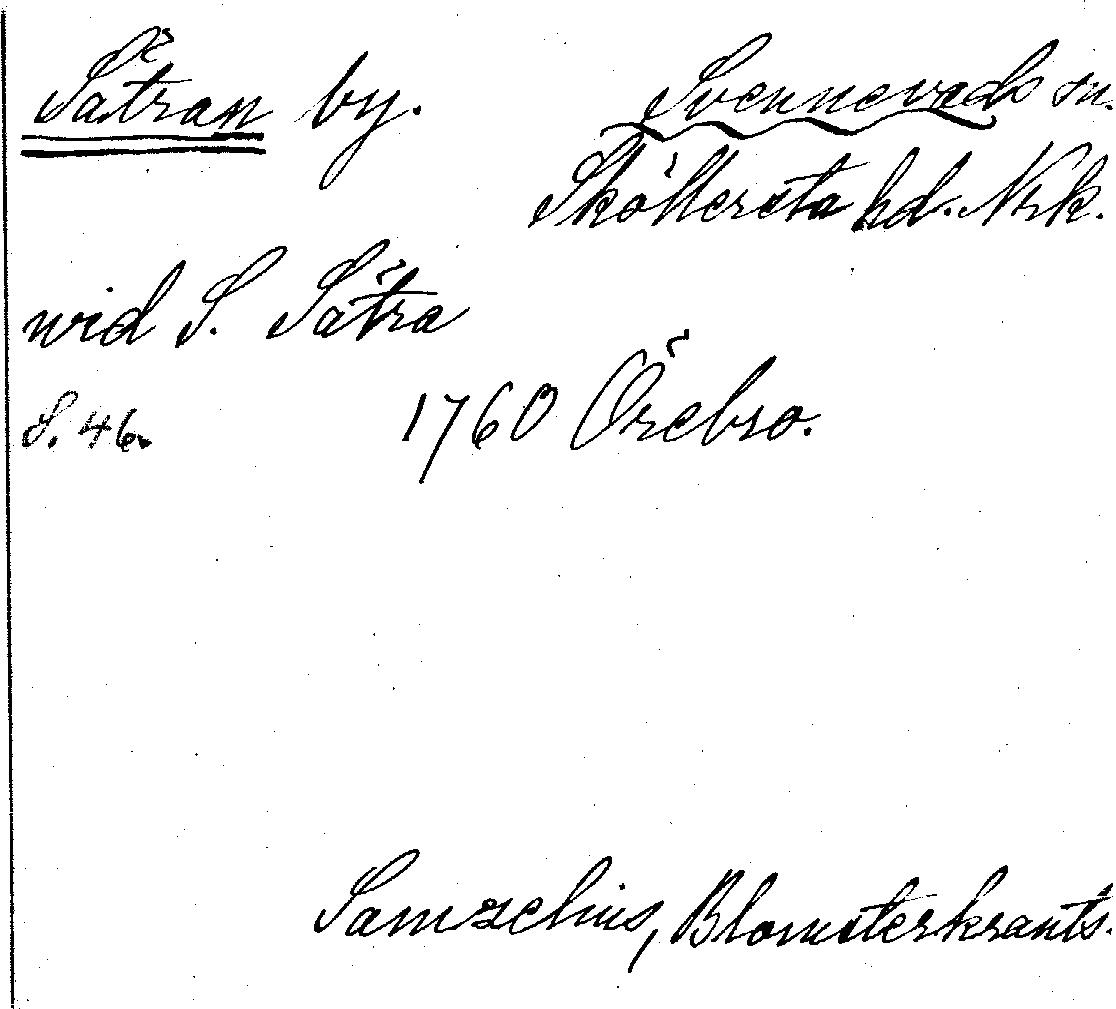 Sätran by. Svennevads sn.
Sköllersta hd. Nrk.
wid S. Sätra
S. 46. 1760 Örebro.
Samzelius, Blomsterkrants.